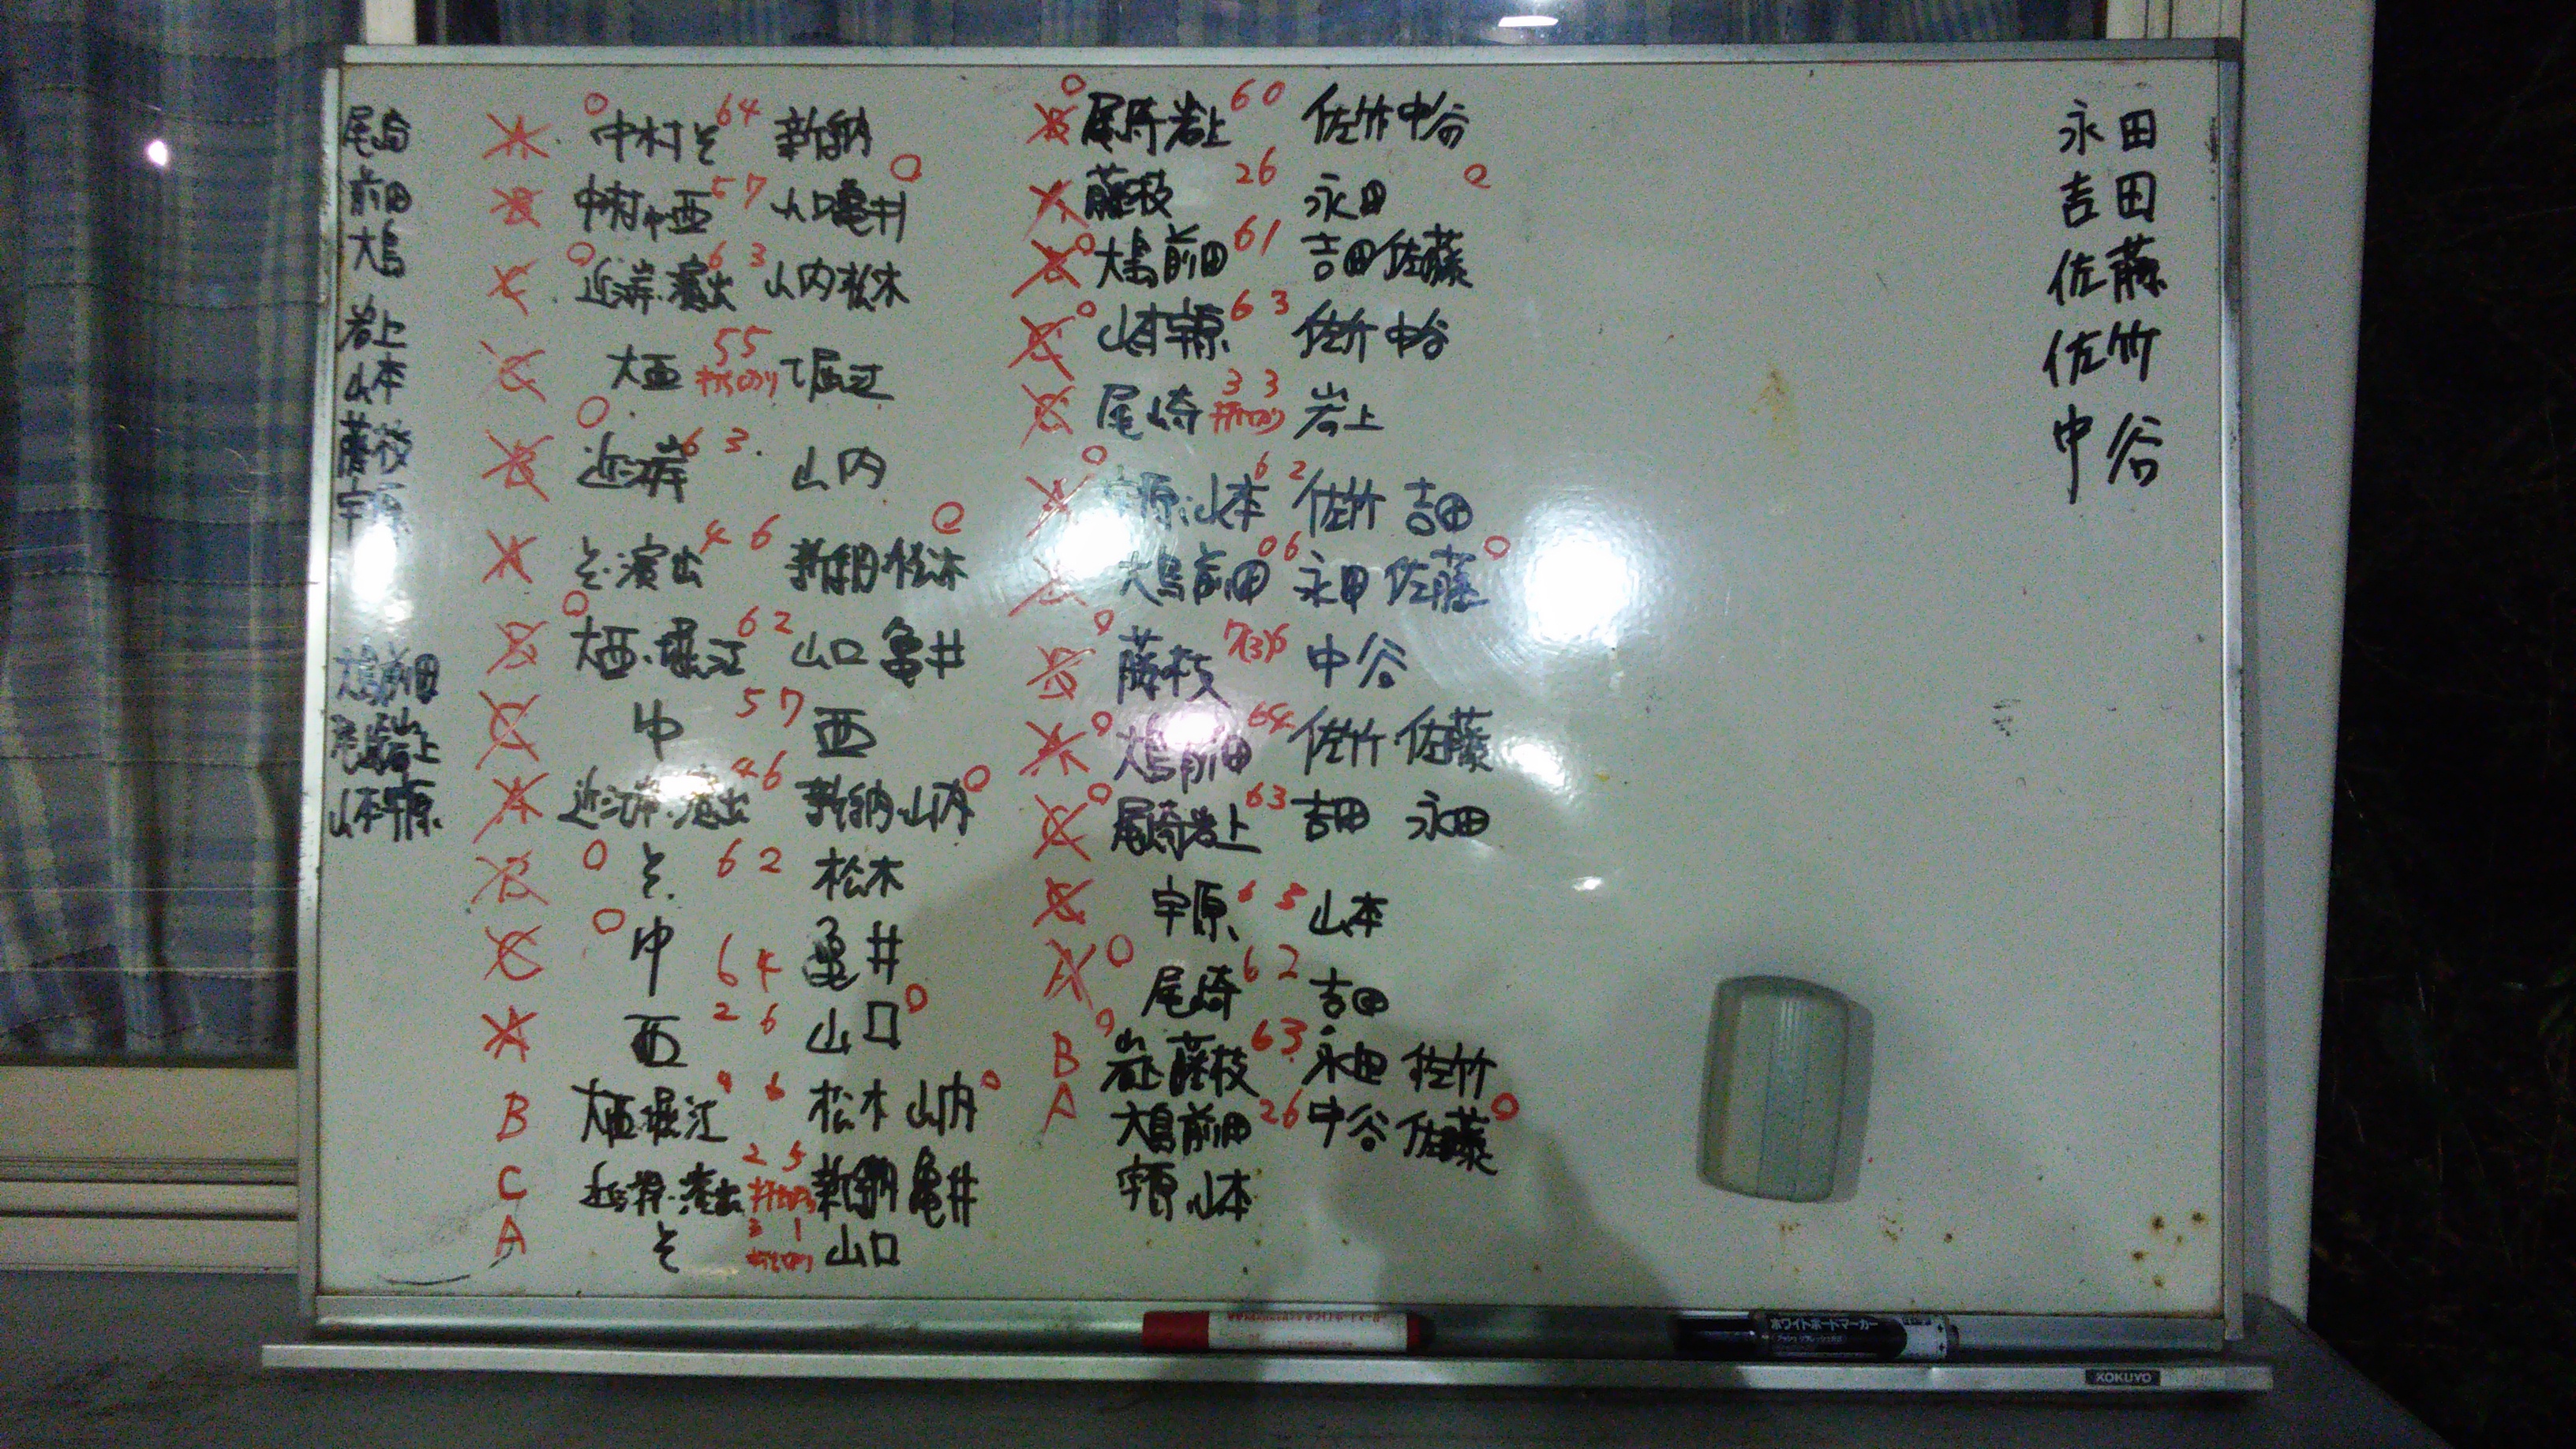 尾崎
前田
大島
岩上
山本
藤枝
宇原
大島前田
尾崎岩上
山本宇原
A 中村そ 64 新納
B 中村中西 57 山口亀井
C 近澤・濱出 63 山内松木
C 大西 55 打ち切り 堀江
B 近澤 63 山内
A そ・濱出 46 新納・松木
B 大西・堀江 62 山口 亀井
C 中 57 西
A 近澤・濱出 46 新納・山内
B そ 62 松木
C 中 64 亀井
A 西 26 山口
B 大西・堀江 46 松木 山内
C 近澤・濱出 25 打ち切り 新納 亀井
A そ 31 打ち切り 山口
B 尾崎岩上 60 佐竹中谷
A 藤枝 26 永田
大島前田 61 吉田佐藤
C 山本宇原 63 佐竹中谷
C 尾崎 33 打ち切り 岩上
A 宇原・山本 62 佐竹 吉田
大島前田 06 永田 佐藤
B 藤枝 7(3)6 中谷
A 大島前田 64 佐竹・佐藤
C 尾崎岩上 63 吉田 永田
宇原 63 山本
A 尾崎 62 吉田
B 岩上・藤枝 63 永田 佐竹
A 大島前田 26 中谷 佐藤
宇原・山本
永田
吉田
佐藤
佐竹
中谷
ホワイトボードマーカー
KOKUYO